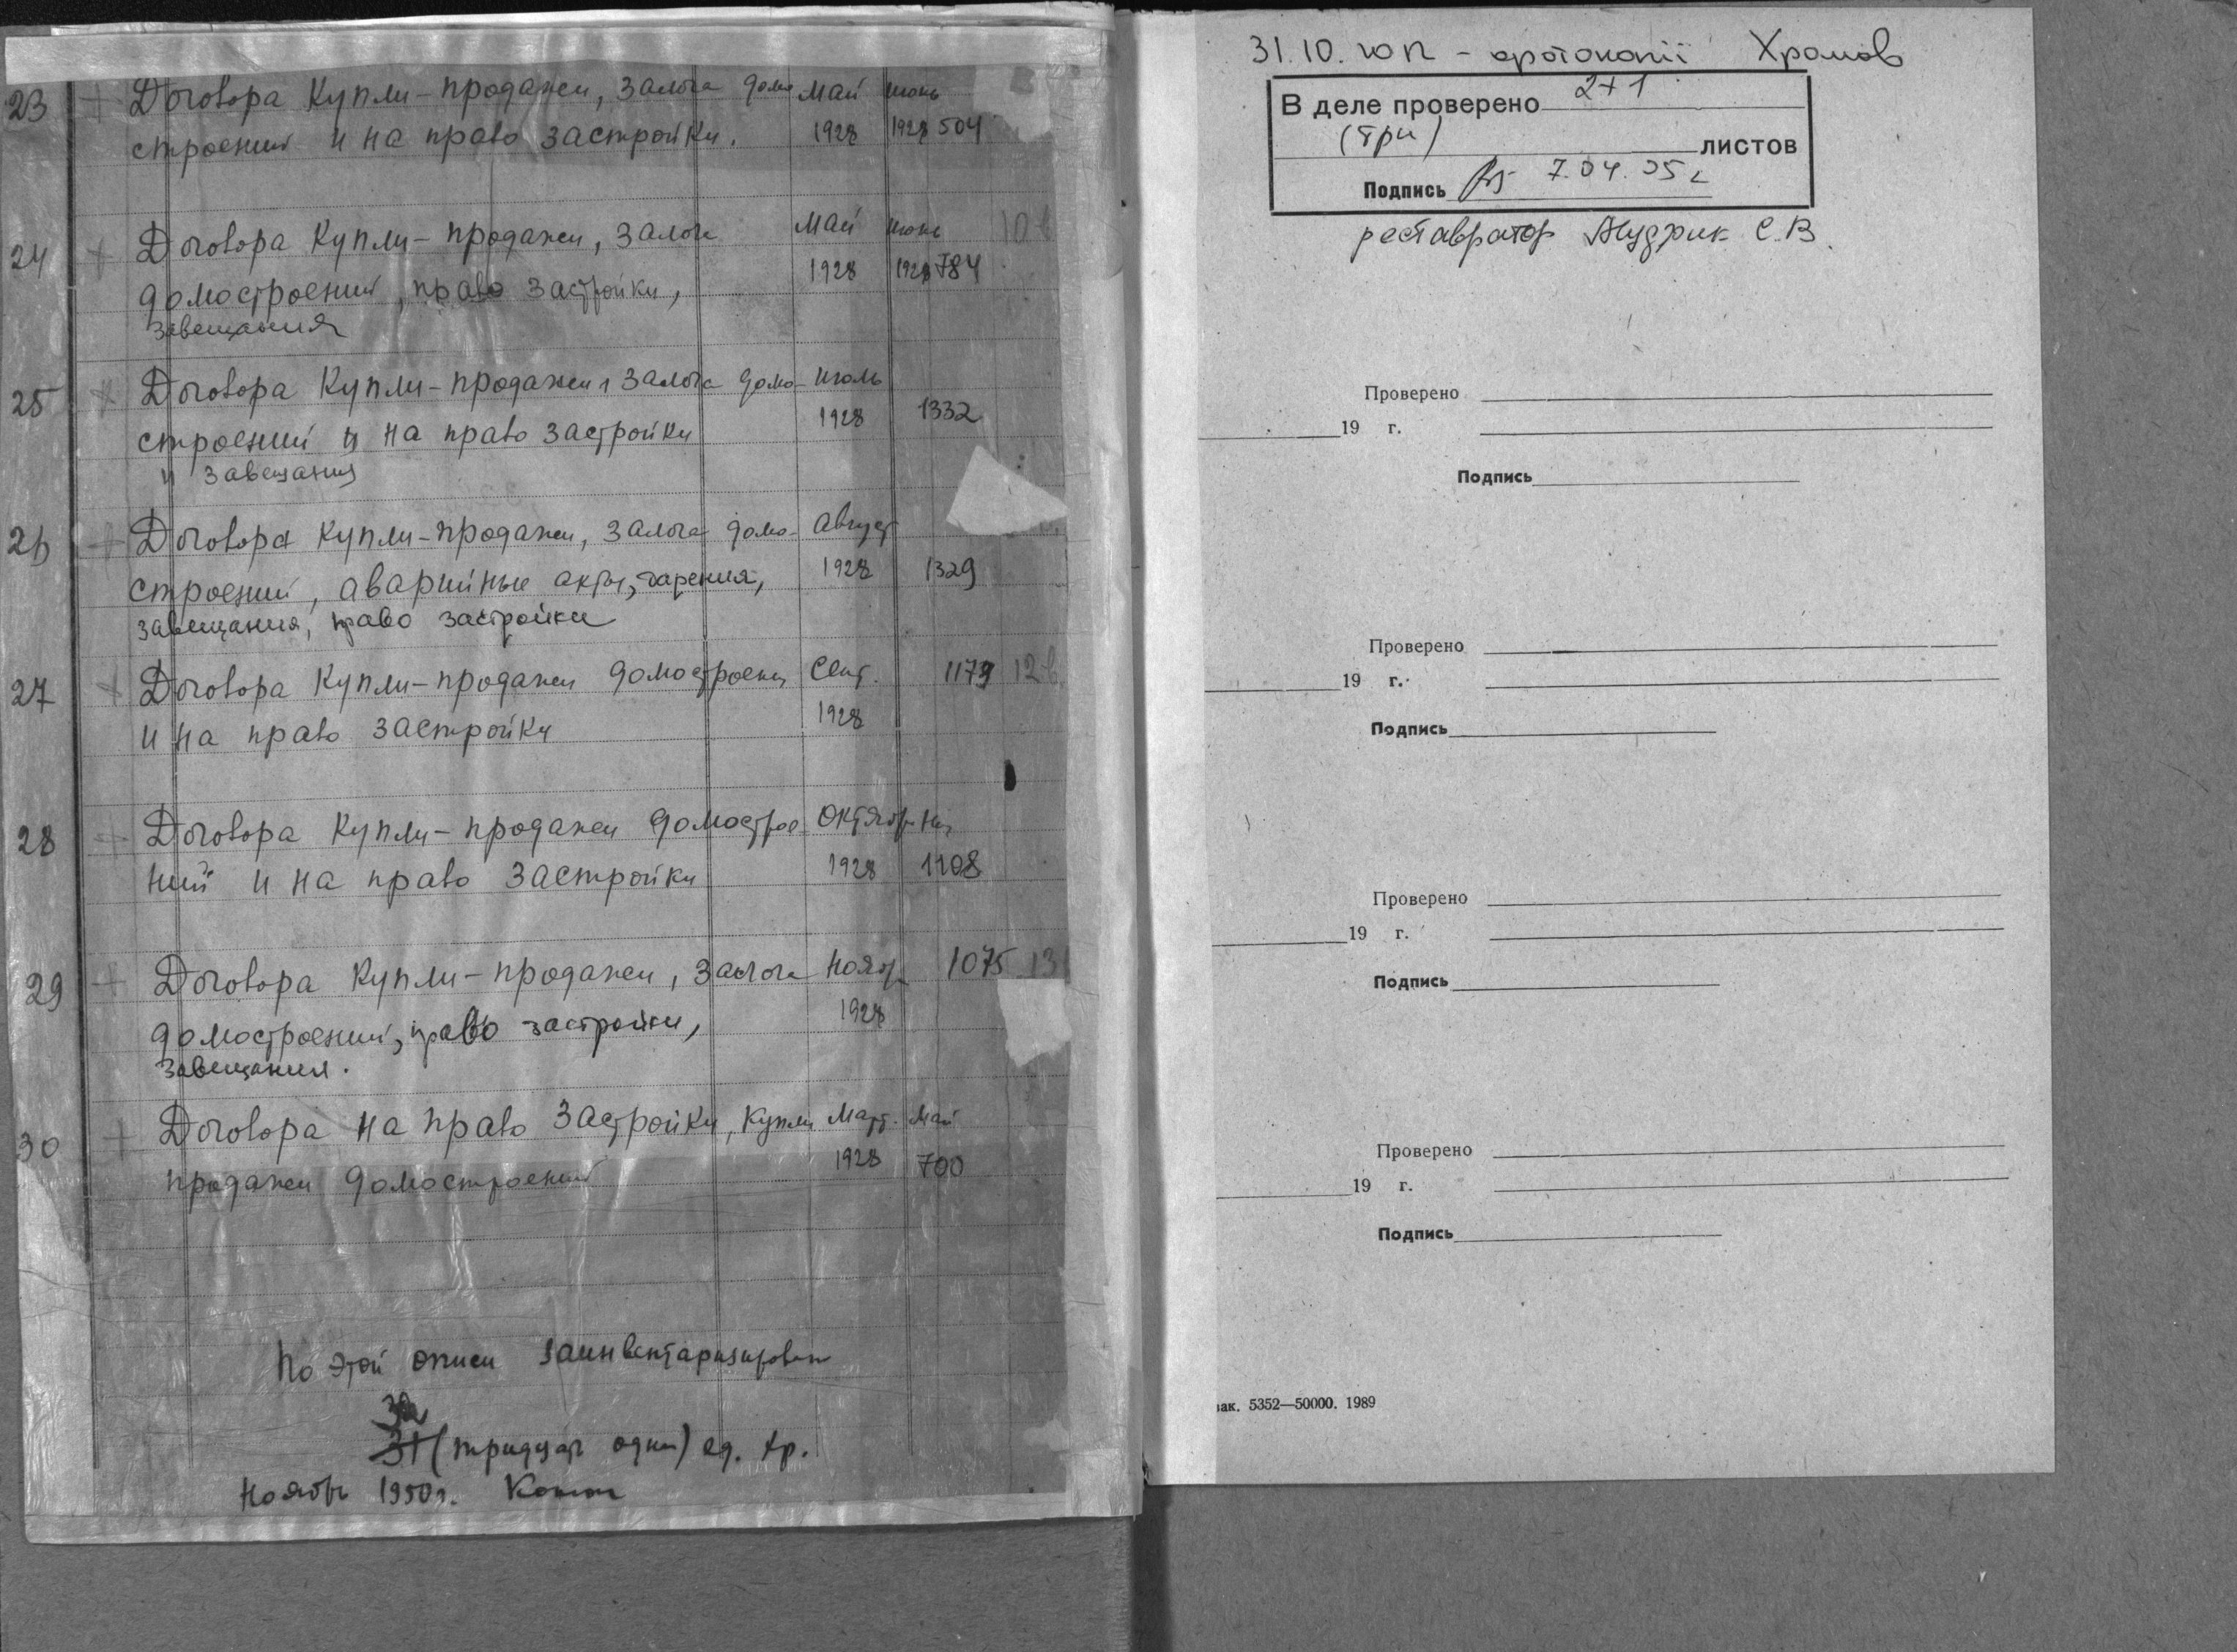 23 + Договора купли-продажи, залога домо май июнь
строений и на право застройки. 1928 1928 504
24 + Договора купли-продажи, залога май июнь
домостроений, право застройки, 1928 1928 784
завещания
25 + Договора купли-продажи, залога домо- июль
строений и на право застройки 1928 1332
и завещания
26 + Договора купли-продажи, залога домо- август
строений, аварийные акты, дарения, 1928 1329
завещания, право застройки
27 + Договора купли-продажи домостроений Сент. 1179
и на право застройки 1928
28 + Договора купли-продажи домострое- октябрь
ний и на право застройки 1928 1108
29 + Договора купли-продажи, залога ноябр 1075
домостроений, право застройки, 1928
завещания.
30 + Договора на право застройки, купли март. май
продажи домостроений 1928 700
По этой описи заинвентаризирован
31 (тридцать один) ед. хр.
Ноябрь 1950 г.
31.10. - фотокопії Хромов
В деле проверено 2+1
(три) листов
Подпись 7.04.05 г
реставратор С.В.
Проверено
19 г.
Подпись
Проверено
19 г.
Подпись
Проверено
19 г.
Подпись
Проверено
19 г.
Подпись
зак. 5352—50000. 1989